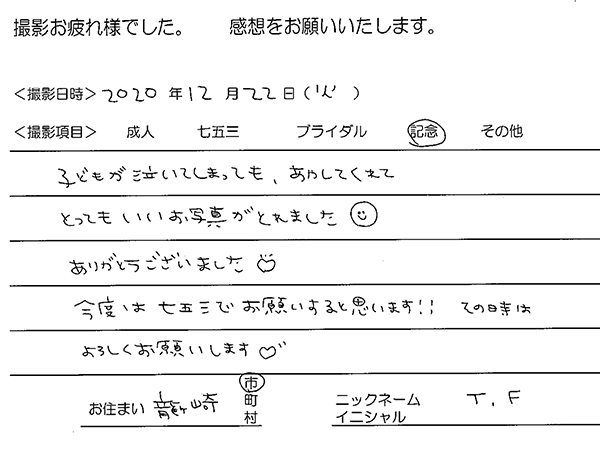 撮影お疲れ様でした。 感想をお願いいたします。
<撮影日時> 2020 年 12 月 22 日 (火)
<撮影項目> 成人 七五三 ブライダル 記念 その他
子どもが泣いてしまっても、あやしてくれて
とってもいいお写真がとれました
ありがとうございました
今度は七五三でお願いすると思います!! その時は
よろしくお願いします
お住まい 龍ヶ崎 市 町 村 ニックネーム イニシャル T.F